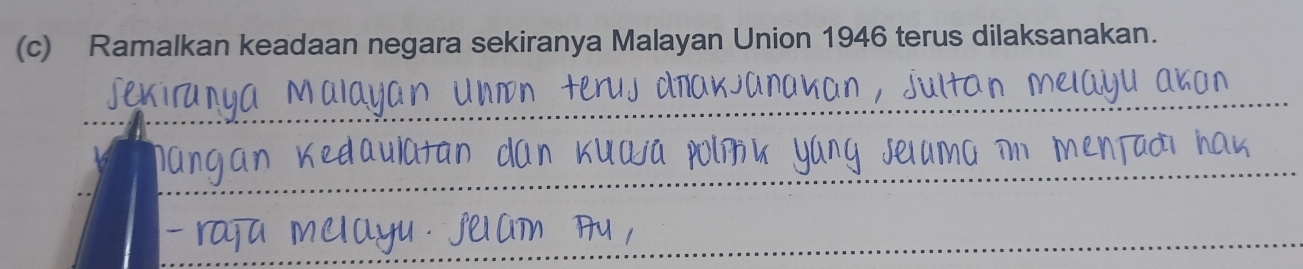 (c) Ramalkan keadaan negara sekiranya Malayan Union 1946 terus dilaksanakan.
Sekiranya Malayan Union terus dilaksanakan, sultan melayu akan
kedaulatan dan kuasa politik yang selama ini menjadi hak
-raja melayu. Selain itu,